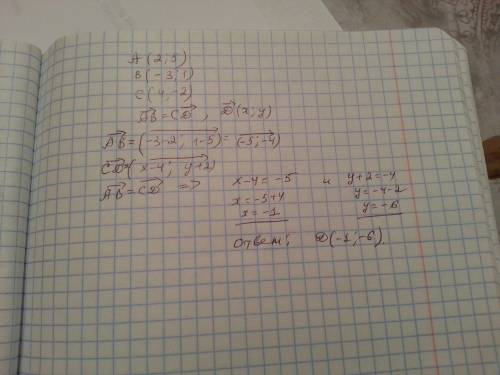 A(2; 5)
B(-3; 1)
C(4; -2)
AB = CD, D(x; y)
AB = (-3-2; 1-5) = (-5; -4)
CD = (x-4; y+2)
AB = CD => x-4 = -5 и y+2 = -4
x = -5+4 y = -4-2
x = -1 y = -6
ответ: D(-1; -6).